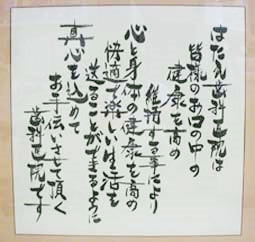 はたえ歯科医院は
皆様のお口の中の
健康を高め
維持する事により
心と身体の健康を高め
快適で楽しい生活を
送ることができるように
真心を込めて
お手伝いさせて頂く
歯科医院です